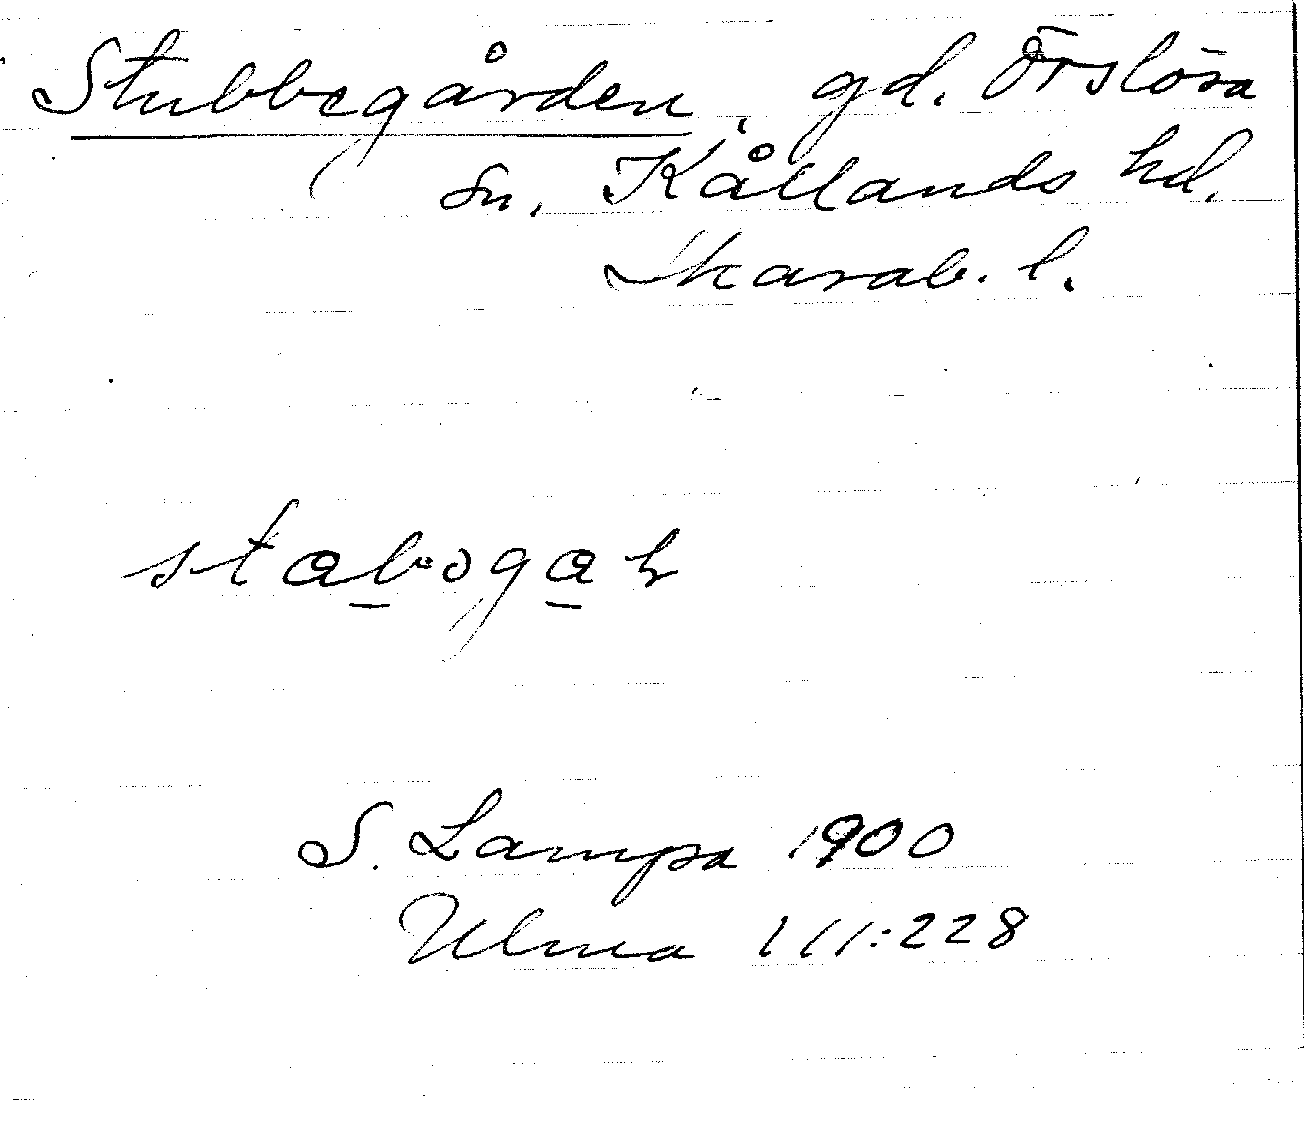 Stubbegården, gd. Örslösa
sn. Kållands hd.
Skarab. l.
S. Lampa 1900
Ulma 111:228